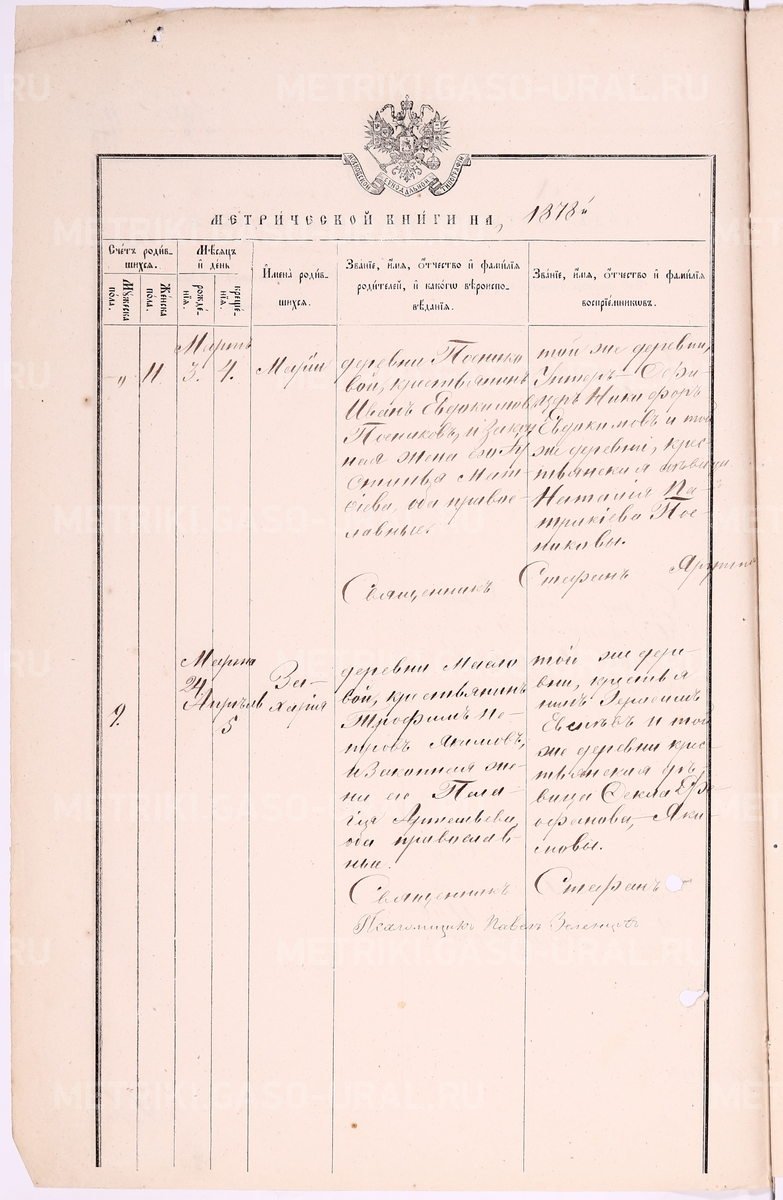 METRIKI.GASO-URAL.RU
МОСКОВСКОЙ СѴНОДАЛЬНОЙ ТИПОГРАФІИ
МЕТРИЧЕСКОЙ КНИГИ НА, 1878й
Счетъ родив-
шихся.
Мужеска пола.
Женска пола.
Мѣсяцъ
и день
рожде-
нія.
креще-
нія.
Имена родив-
шихся.
Званіе, имя, отчество и фамилія
родителей, и какого вѣроиспо-
вѣданія.
Званіе, имя, отчество и фамилія
воспріемниковъ.
Мартъ
" 11 3. 4. Маріи
деревни Поснико
вой, крестьянинъ
Иванъ Евдокимовъ
Посниковъ, и закон
ная жена его
Мат
ѳіева, оба правос-
лавные.
той же деревни,
Унтеръ-Офи
церъ Никифоръ
Евдокимовъ и той
же деревни, крес
тьянская дѣвица
Наталія Па
трикіева Пос
никовы.
Священникъ Стефанъ
9.
Марта
24
Апрѣля
5
За-
харія
деревни Масло
вой, крестьянинъ
Трофимъ Пе-
тровъ Якимовъ,
и законная же-
на его Пела
гія Артемьева,
оба православ-
ные.
той же дере
вни, крестья
нинъ Герасимъ
и той
же деревни крес
тьянская дѣ
вица Ѳекла
Яки-
мовы.
Священникъ Стефанъ
Псаломщикъ Павелъ Зеленцовъ